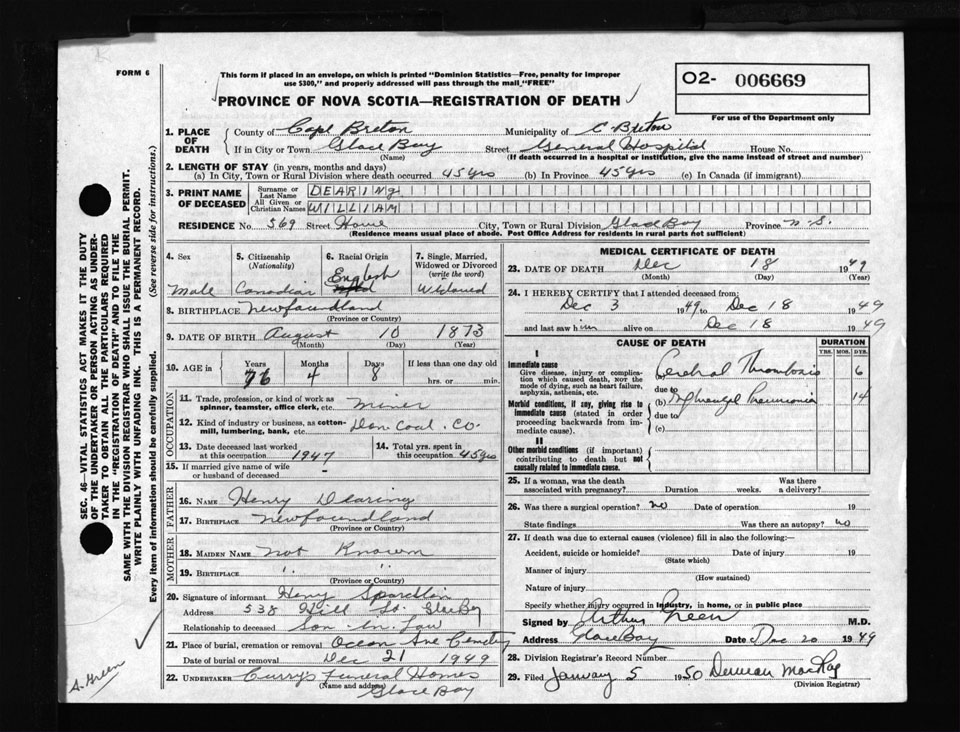 FORM 6
This form if placed in an envelope, on which is printed "Dominion Statistics—Free, penalty for improper
use $300," and properly addressed will pass through the mail "FREE"
O2- 006669
For use of the Department only
PROVINCE OF NOVA SCOTIA—REGISTRATION OF DEATH
1. PLACE OF DEATH County of Cape Breton Municipality of C Breton
If in City or Town Glace Bay Street General Hospital House No.
(Name) (If death occurred in a hospital or institution, give the name instead of street and number)
2. LENGTH OF STAY (in years, months and days)
(a) In City, Town or Rural Division where death occurred 45 yrs (b) In Province 45 yrs (c) In Canada (if immigrant)
3. PRINT NAME OF DECEASED Surname or Last Name DEARING
All Given or Christian Names WILLIAM
RESIDENCE No. 569 Street Howie City, Town or Rural Division Glace Bay Province N.S.
(Residence means usual place of abode. Post Office Address for residents in rural parts not sufficient)
4. Sex Male
5. Citizenship (Nationality) Canadian
6. Racial Origin English
7. Single, Married, Widowed or Divorced (write the word) Widowed
8. BIRTHPLACE Newfoundland
(Province or Country)
9. DATE OF BIRTH August 10 1873
(Month) (Day) (Year)
10. AGE in Years 76 Months 4 Days 8 If less than one day old
hrs. or min.
OCCUPATION
11. Trade, profession, or kind of work as
spinner, teamster, office clerk, etc. Miner
12. Kind of industry or business, as cotton-
mill, lumbering, bank, etc. Dom Coal. Co.
13. Date deceased last worked
at this occupation 1947
14. Total yrs. spent in
this occupation 45 yrs
15. If married give name of wife
or husband of deceased
FATHER
16. NAME Henry Dearing
17. BIRTHPLACE Newfoundland
(Province or Country)
MOTHER
18. MAIDEN NAME Not Known
19. BIRTHPLACE " "
(Province or Country)
20. Signature of informant Henry
Address 538 Hill St. Glace Bay
Relationship to deceased Son-In-Law
21. Place of burial, cremation or removal Ocean Ave Cemetery
Date of burial or removal Dec 21 1949
22. UNDERTAKER Curry's Funeral Homes
(Name and address) Glace Bay
MEDICAL CERTIFICATE OF DEATH
23. DATE OF DEATH Dec 18 1949
(Month) (Day) (Year)
24. I HEREBY CERTIFY that I attended deceased from:
Dec 3 1949 to Dec 18 1949
and last saw him alive on Dec 18 1949
CAUSE OF DEATH DURATION
YRS. MOS. DYS.
I
Immediate cause
Give disease, injury or complica-
tion which caused death, not the
mode of dying, such as heart failure,
asphyxia, asthenia, etc.
(a) Cerebral Thrombosis 6
due to
Morbid conditions, if any, giving rise to
immediate cause (stated in order
proceeding backwards from im-
mediate cause).
(b) Pneumonia 14
due to
(c)
II
Other morbid conditions (if important)
contributing to death but not
causally related to immediate cause.
25. If a woman, was the death
associated with pregnancy? Duration weeks. Was there a delivery?
26. Was there a surgical operation? No Date of operation 19
State findings Was there an autopsy? No
27. If death was due to external causes (violence) fill in also the following:—
Accident, suicide or homicide? Date of injury 19
(State which)
Manner of injury
(How sustained)
Nature of injury
Specify whether injury occurred in industry, in home, or in public place
Signed by Arthur Green M.D.
Address Glace Bay Date Dec 20 1949
28. Division Registrar's Record Number
29. Filed January 5 1950
(Division Registrar)
SEC. 46—VITAL STATISTICS ACT MAKES IT THE DUTY
OF THE UNDERTAKER OR PERSON ACTING AS UNDER-
TAKER TO OBTAIN ALL THE PARTICULARS REQUIRED
IN THE "REGISTRATION OF DEATH" AND TO FILE THE
SAME WITH THE DIVISION REGISTRAR WHO SHALL ISSUE THE BURIAL PERMIT.
WRITE PLAINLY WITH UNFADING INK. THIS IS A PERMANENT RECORD.
Every item of information should be carefully supplied. (See reverse side for instructions.)
A. Green